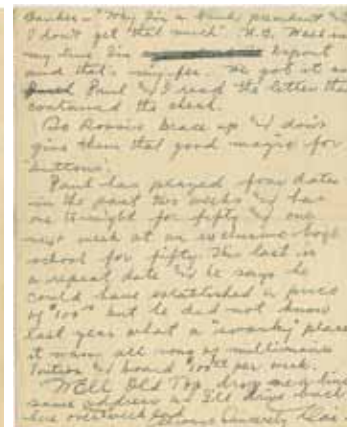 Banker — "Why I'm a bank president &
I don't get that much". H.B. Well
my
and that's my fee. He got it
Paul & I read the letter that
contained the check.
So brace up & don't
give them that good magic for
buttons.
Paul has played four dates
in the past two weeks & has
one tonight for fifty & one
next week at an exclusive boys
school for fifty. This last is
a repeat date & he says he
could have established a price
of "100" but he did not know
last year what a "swanky" place
it was, all sons of millionaires
Tuition & board "100" per week.
Well Old Top, drop me a line
same address as I'll drive back
here over week end.
Always Sincerely